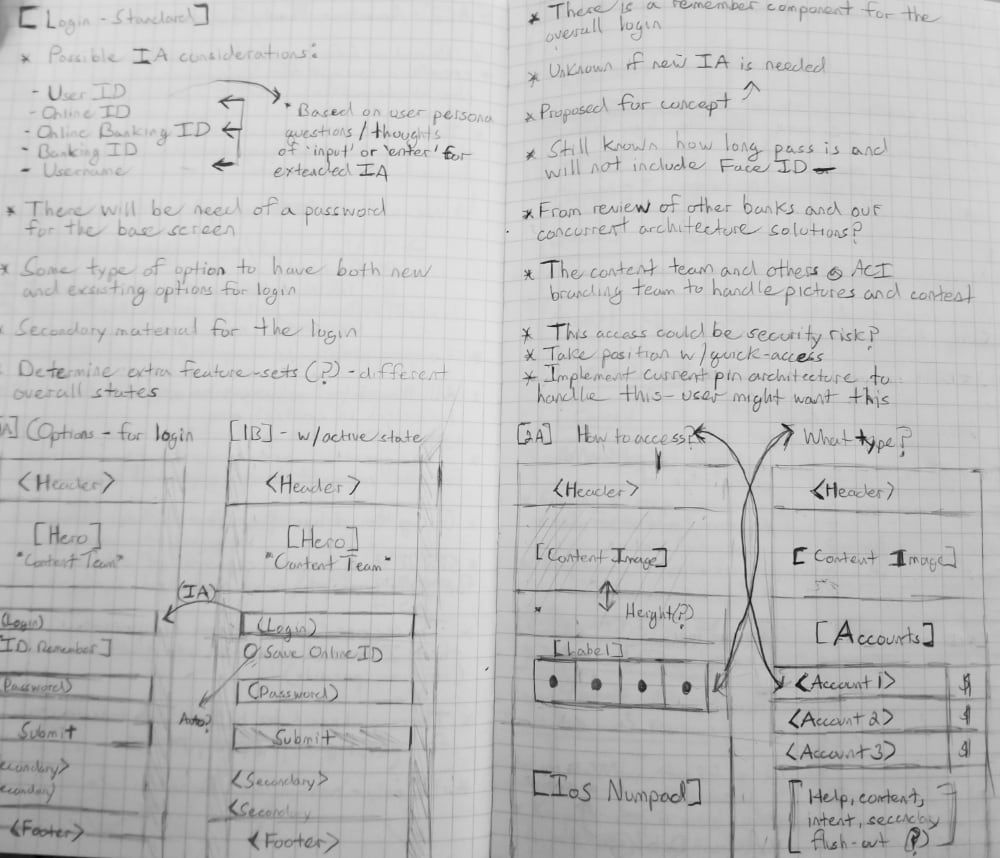 [Login - Standard]
* Possible IA considerations:
- User ID
- Online ID
- Online Banking ID
- Banking ID
- Username
* Based on user persona
questions / thoughts
of 'input' or 'enter' for
extended IA
* There will be need of a password
for the base screen
* Some type of option to have both new
and exsisting options for login
Secondary material for the login
Determine extra feature-sets (?) - different
overall states
A] (Options - for login
<Header>
[Hero]
"Content Team"
(Login)
[ID, Remember]
Password)
Submit
econdary>
<Footer>
[1B] - w/active state
<Header>
[Hero]
"Content Team"
(IA)
(Login)
O Save Online ID
(Password)
Auto?
Submit
<Secondary>
<Secondary
<Footer>
* There is a remember component for the
overall login
* Unknown if new IA is needed
* Proposed for concept
* Still known how long pass is and
will not include Face ID
* From review of other banks and our
concurrent architecture solutions?
* The content team and others @ ACI
branding team to handle pictures and content
* This access could be security risk?
* Take position w/quick-access
* Implement current pin architecture to
handle this - user might want this
[2A] How to access?
<Header>
[Content Image]
* Height(?)
[Label]
[IoS Numpad]
What type?
<Header>
[Content Image]
[Accounts]
<Account 1> $
<Account 2> $
<Account 3> $
[Help, content,
intent, secondary
flush-out (?)]